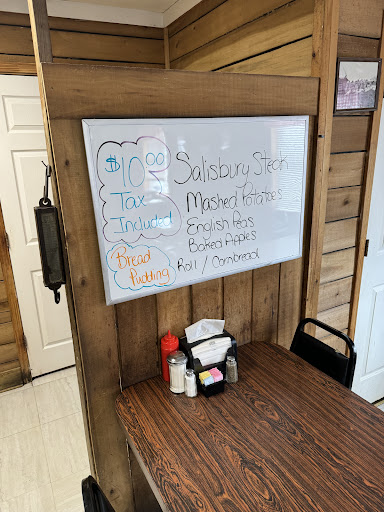 $10.00
Tax
Included
Bread
Pudding
Salisbury Steak
Mashed Potatoes
English Peas
Baked Apples
Roll / Cornbread